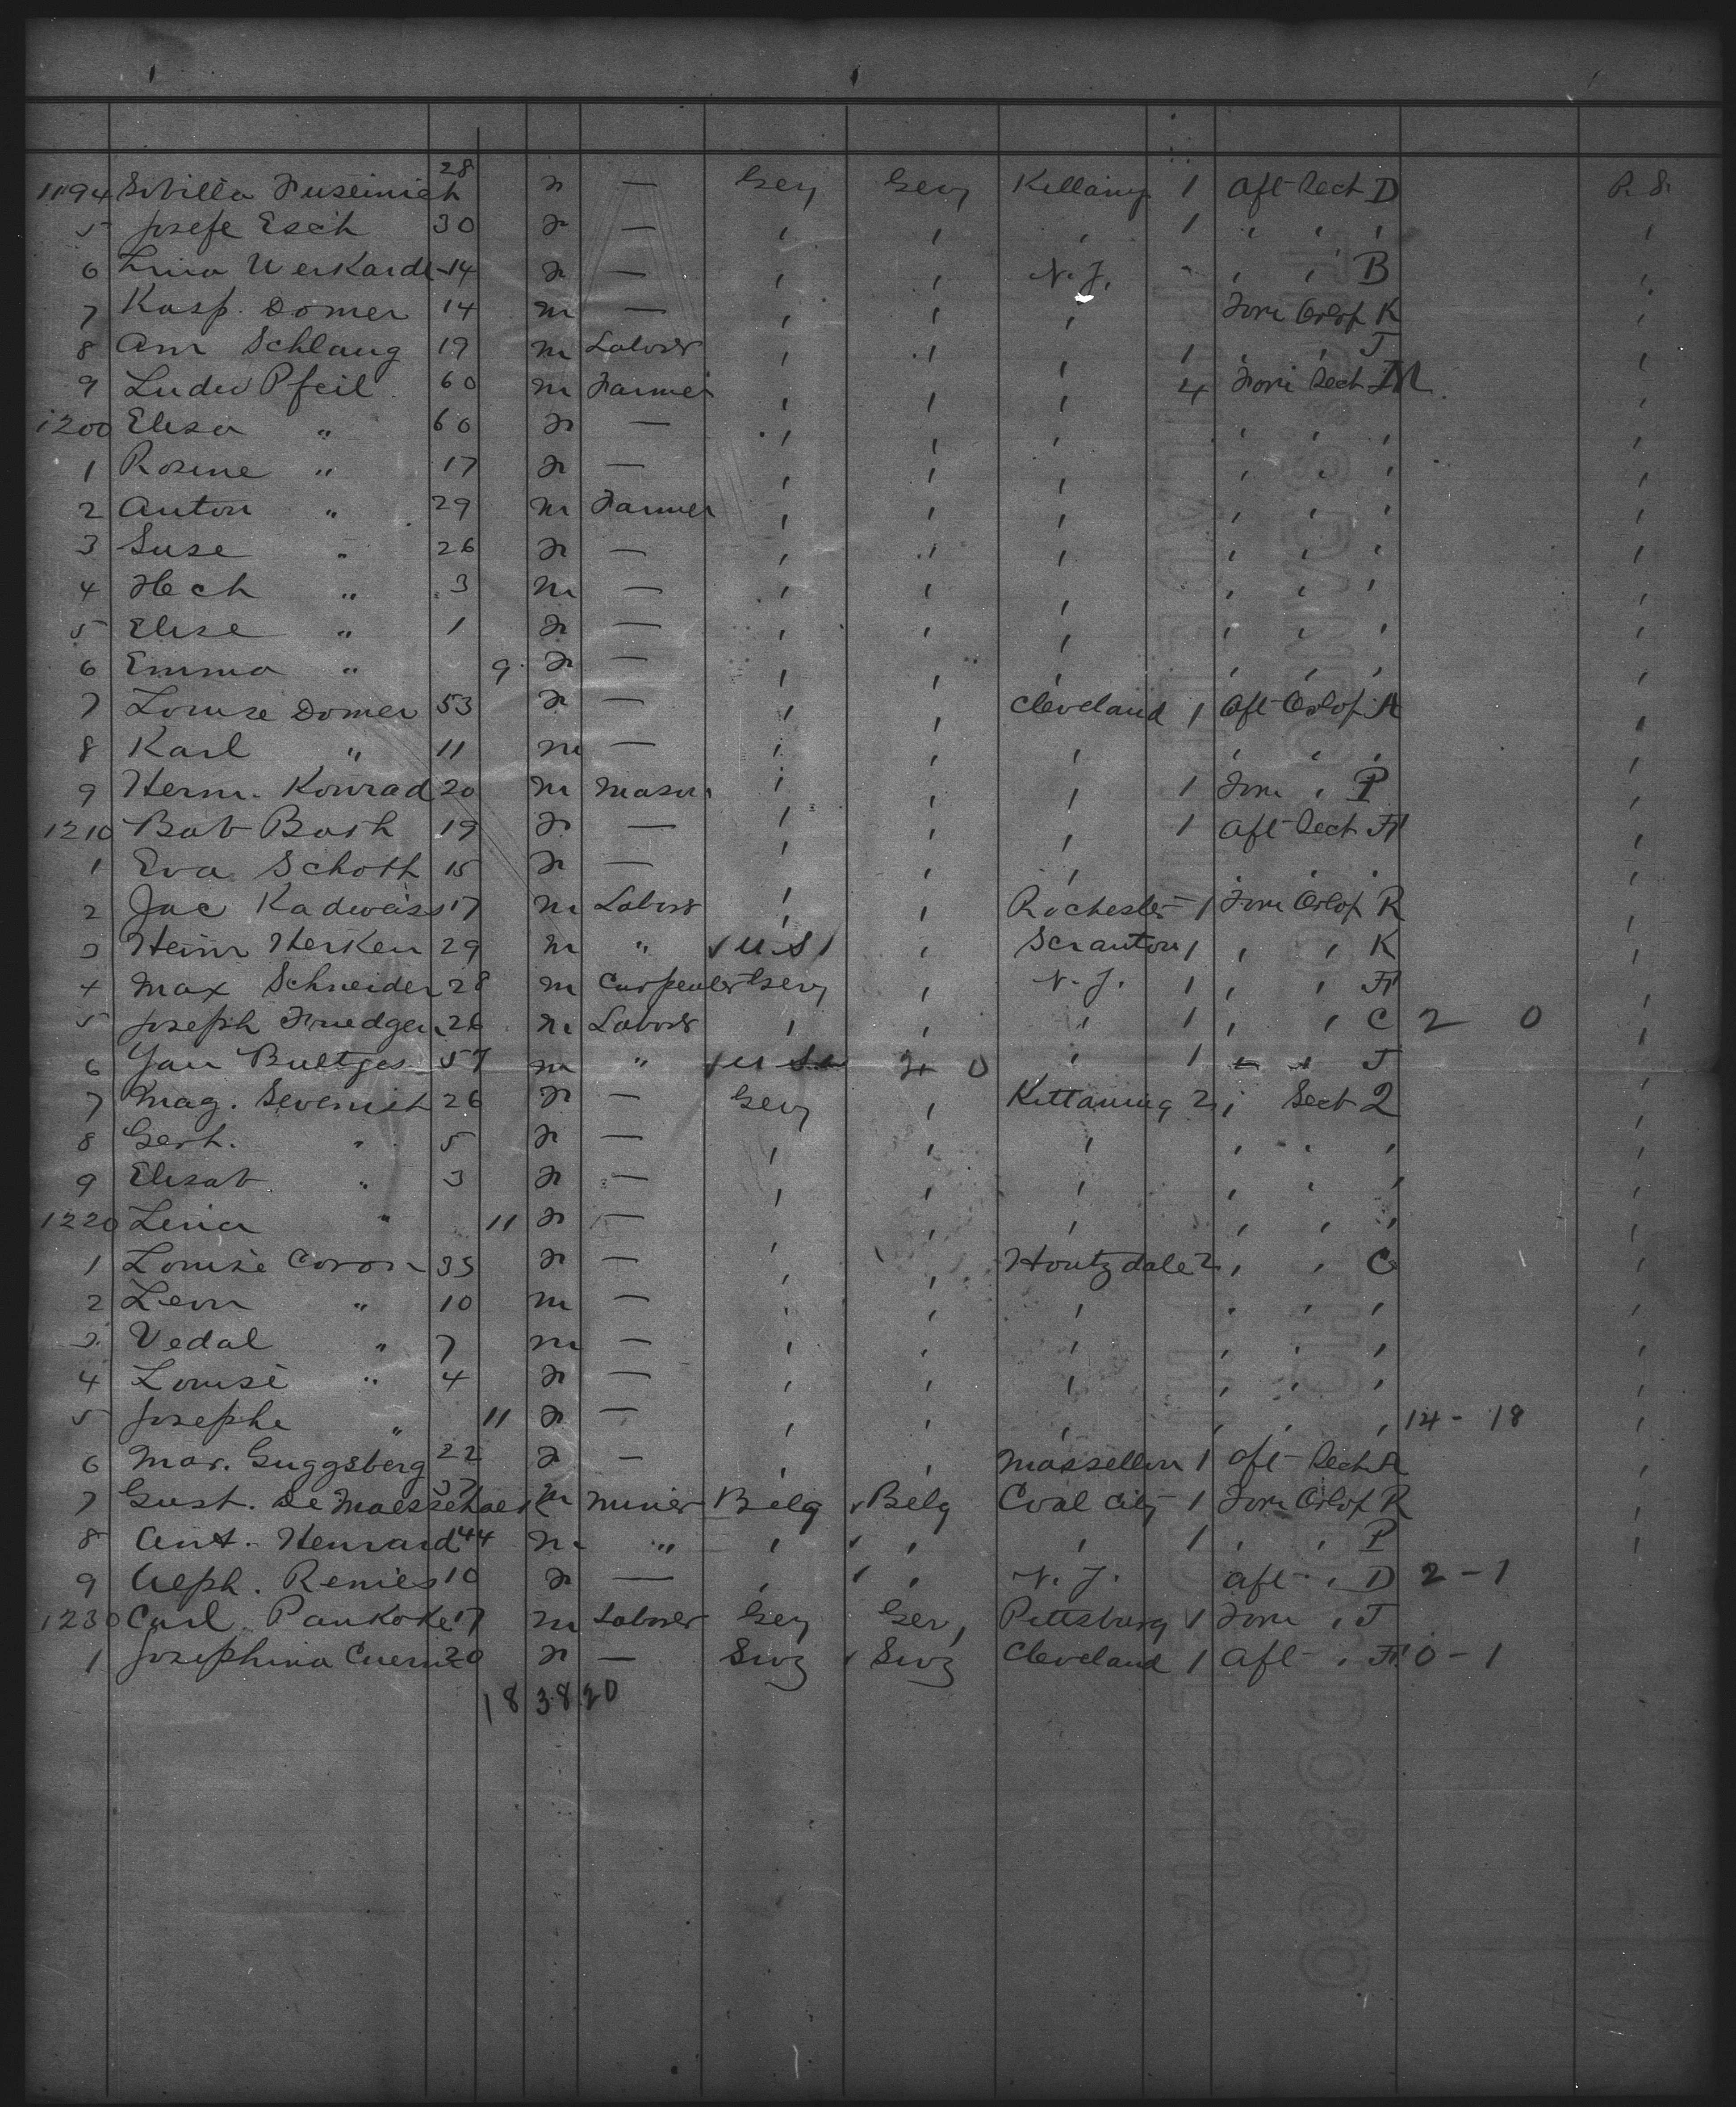 1194 Sibilla Fuseinich 28 F — Gey Gery Kittaing 1 Aft Sect D P. S.
5 Josefe Esch 30 F — ' ' ' 1 ' ' ' '
6 Lina Werkardt 14 F — ' ' N. J. ' ' B '
7 Kasp. Domer 14 m — ' ' ' Form Orlop K '
8 Am Schlaug 19 m Laborer ' ' ' 1 ' ' J '
9 Ludw Pfeil 60 m Farmer ' ' ' 4 Form Sect M '
1200 Elisa " 60 F — ' ' ' ' ' ' '
1 Rosine " 17 F — ' ' ' ' ' ' '
2 Anton " 29 m Farmer ' ' ' ' ' ' '
3 Suse " 26 F — ' ' ' ' ' ' '
4 Hech " 3 m — ' ' ' ' ' ' '
5 Elise " 1 F — ' ' ' ' ' ' '
6 Emma " 9 F — ' ' ' ' ' ' '
7 Louise Domer 53 F — ' ' Cleveland 1 Aft Orlop A '
8 Karl " 11 m — ' ' ' ' ' ' '
9 Herm. Konrad 20 m Mason ' ' ' 1 Form ' P '
1210 Bab Bash 19 F — ' ' ' 1 Aft Sect H '
1 Eva Schott 15 F — ' ' ' ' ' ' '
2 Jac Kadwass 17 m Labors ' ' Rochester 1 Form Orlop R '
3 Heinr Herken 29 m " U. S ' Scranton 1 ' ' K '
4 Max Schneider 28 m Carpenter Gery ' N. J. 1 ' ' H '
5 Joseph 26 m Laborer ' ' ' 1 ' ' C 2 0 '
6 Jan Bultges 57 m " U S 0 ' 1 ' ' J '
7 Mag. Sevenich 26 F — Gery ' Kittaning 2 ' Sect Q '
8 Gerh. " 5 F — ' ' ' ' ' ' '
9 Elisab " 3 F — ' ' ' ' ' ' '
1220 Lena " 11 F — ' ' ' ' ' ' '
1 Louise Coron 35 F — ' ' Houtzdale 2 ' ' C '
2 Leon " 10 m — ' ' ' ' ' ' '
3 Vedal " 7 m — ' ' ' ' ' ' '
4 Louise " 4 F — ' ' ' ' ' ' '
5 Josephe " 11 F — ' ' ' ' ' ' 14 - 18 '
6 Mar. Guggsberg 22 F — ' ' Massellon 1 Aft Sect A '
7 Gust. De Maesschaelk 37 m Miner Belg Belg Coal City 1 Form Orlop R '
8 Ant. Henrard 44 m " ' ' ' 1 ' ' P '
9 Alph. Renies 10 F — ' ' N. J. Aft ' D 2 - 1
1230 Carl Pankoke 17 m Laborer Gey Ger, Pittsburg 1 Form ' J
1 Josephina 20 F — Swz Swz Cleveland 1 Aft ' H 0 - 1
18 38 20